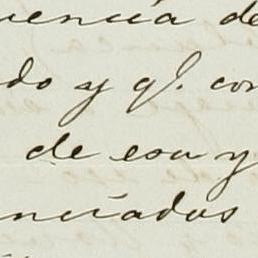 uencia de
do y q^l. con
de esa y
nciados